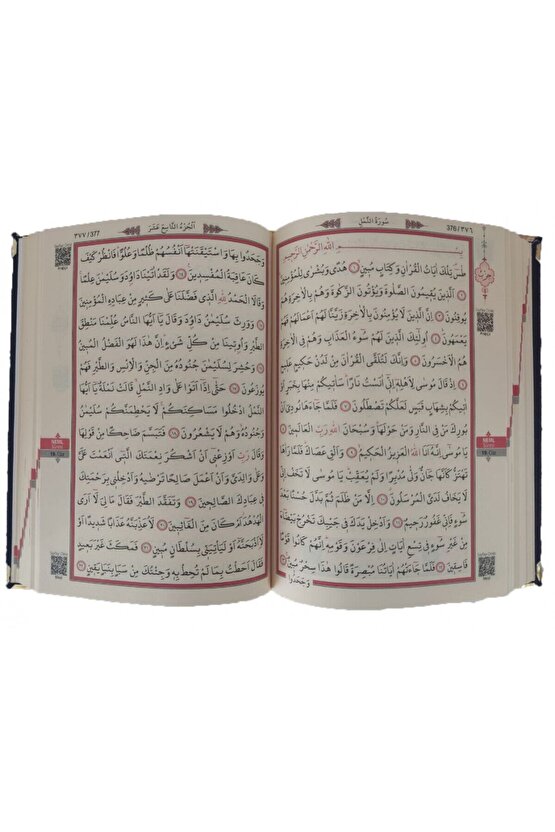 سُورَةُ النَّمْلِ
376/٣٧٦
بِسْمِ اللّٰهِ الرَّحْمٰنِ الرَّحِيمِ
طٰسٓ تِلْكَ اٰيَاتُ الْقُرْاٰنِ وَكِتَابٍ مُبِينٍ ﴿١﴾ هُدًى وَبُشْرٰى لِلْمُؤْمِنِينَ
﴿٢﴾ اَلَّذِينَ يُقِيمُونَ الصَّلٰوةَ وَيُؤْتُونَ الزَّكٰوةَ وَهُمْ بِالْاٰخِرَةِ هُمْ
يُوقِنُونَ ﴿٣﴾ اِنَّ الَّذِينَ لَا يُؤْمِنُونَ بِالْاٰخِرَةِ زَيَّنَّا لَهُمْ اَعْمَالَهُمْ فَهُمْ
يَعْمَهُونَ ﴿٤﴾ اُولٰٓئِكَ الَّذِينَ لَهُمْ سُٓوءُ الْعَذَابِ وَهُمْ فِي الْاٰخِرَةِ
هُمُ الْاَخْسَرُونَ ﴿٥﴾ وَاِنَّكَ لَتُلَقَّى الْقُرْاٰنَ مِنْ لَدُنْ حَكِيمٍ عَلِيمٍ
﴿٦﴾ اِذْ قَالَ مُوسٰى لِاَهْلِهٖٓ اِنِّٓي اٰنَسْتُ نَارًا سَاٰتِيكُمْ مِنْهَا بِخَبَرٍ اَوْ
اٰتِيكُمْ بِشِهَابٍ قَبَسٍ لَعَلَّكُمْ تَصْطَلُونَ ﴿٧﴾ فَلَمَّا جَٓاءَهَا نُودِيَ اَنْ
بُورِكَ مَنْ فِي النَّارِ وَمَنْ حَوْلَهَا وَسُبْحَانَ اللّٰهِ رَبِّ الْعَالَمِينَ ﴿٨﴾
يَا مُوسٰٓى اِنَّهُٓ اَنَا اللّٰهُ الْعَزِيزُ الْحَكِيمُ ﴿٩﴾ وَاَلْقِ عَصَاكَ فَلَمَّا رَاٰهَا
تَهْتَزُّ كَاَنَّهَا جَٓانٌّ وَلّٰى مُدْبِرًا وَلَمْ يُعَقِّبْ يَا مُوسٰى لَا تَخَفْ اِنِّي
لَا يَخَافُ لَدَيَّ الْمُرْسَلُونَ ﴿١٠﴾ اِلَّا مَنْ ظَلَمَ ثُمَّ بَدَّلَ حُسْنًا بَعْدَ
سُٓوءٍ فَاِنِّي غَفُورٌ رَحِيمٌ ﴿١١﴾ وَاَدْخِلْ يَدَكَ فِي جَيْبِكَ تَخْرُجْ بَيْضَٓاءَ
مِنْ غَيْرِ سُٓوءٍ فِي تِسْعِ اٰيَاتٍ اِلٰى فِرْعَوْنَ وَقَوْمِهٖ اِنَّهُمْ كَانُوا قَوْمًا
فَاسِقِينَ ﴿١٢﴾ فَلَمَّا جَٓاءَتْهُمْ اٰيَاتُنَا مُبْصِرَةً قَالُوا هٰذَا سِحْرٌ مُبِينٌ ﴿١٣﴾
وَجَحَدُوا
NEML
19. Cüz
اَلْجُزْءُ التَّاسِعَ عَشَرَ
٣٧٧/377
وَجَحَدُوا بِهَا وَاسْتَيْقَنَتْهَٓا اَنْفُسُهُمْ ظُلْمًا وَعُلُوًّا فَانْظُرْ كَيْفَ
كَانَ عَاقِبَةُ الْمُفْسِدِينَ ﴿١٤﴾ وَلَقَدْ اٰتَيْنَا دَاوُدَ وَسُلَيْمٰنَ عِلْمًا
وَقَالَا الْحَمْدُ لِلّٰهِ الَّذِي فَضَّلَنَا عَلٰى كَثِيرٍ مِنْ عِبَادِهِ الْمُؤْمِنِينَ
﴿١٥﴾ وَوَرِثَ سُلَيْمٰنُ دَاوُدَ وَقَالَ يَٓا اَيُّهَا النَّاسُ عُلِّمْنَا مَنْطِقَ
الطَّيْرِ وَاُوتِينَا مِنْ كُلِّ شَيْءٍ اِنَّ هٰذَا لَهُوَ الْفَضْلُ الْمُبِينُ
﴿١٦﴾ وَحُشِرَ لِسُلَيْمٰنَ جُنُودُهُ مِنَ الْجِنِّ وَالْاِنْسِ وَالطَّيْرِ فَهُمْ
يُوزَعُونَ ﴿١٧﴾ حَتّٰٓى اِذَٓا اَتَوْا عَلٰى وَادِ النَّمْلِ قَالَتْ نَمْلَةٌ يَٓا اَيُّهَا
النَّمْلُ ادْخُلُوا مَسَاكِنَكُمْ لَا يَحْطِمَنَّكُمْ سُلَيْمٰنُ
وَجُنُودُهُ وَهُمْ لَا يَشْعُرُونَ ﴿١٨﴾ فَتَبَسَّمَ ضَاحِكًا مِنْ قَوْلِهَا
وَقَالَ رَبِّ اَوْزِعْنِٓي اَنْ اَشْكُرَ نِعْمَتَكَ الَّتِٓي اَنْعَمْتَ عَلَيَّ
وَعَلٰى وَالِدَيَّ وَاَنْ اَعْمَلَ صَالِحًا تَرْضٰيهُ وَاَدْخِلْنِي بِرَحْمَتِكَ
فِي عِبَادِكَ الصَّالِحِينَ ﴿١٩﴾ وَتَفَقَّدَ الطَّيْرَ فَقَالَ مَا لِيَ لَٓا اَرَى
الْهُدْهُدَ اَمْ كَانَ مِنَ الْغَٓائِبِينَ ﴿٢٠﴾ لَاُعَذِّبَنَّهُ عَذَابًا شَدِيدًا اَوْ
لَاَاذْبَحَنَّهُٓ اَوْ لَيَأْتِيَنِّي بِسُلْطَانٍ مُبِينٍ ﴿٢١﴾ فَمَكَثَ غَيْرَ بَعِيدٍ
فَقَالَ اَحَطْتُ بِمَا لَمْ تُحِطْ بِهٖ وَجِئْتُكَ مِنْ سَبَاٍ بِنَبَاٍ يَقِينٍ ﴿٢٢﴾
NEML
19. Cüz